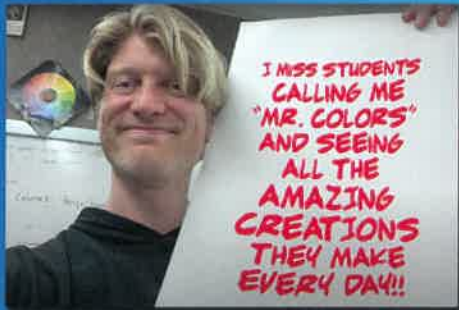 I MISS STUDENTS
CALLING ME
"MR. COLORS"
AND SEEING
ALL THE
AMAZING
CREATIONS
THEY MAKE
EVERY DAY!!